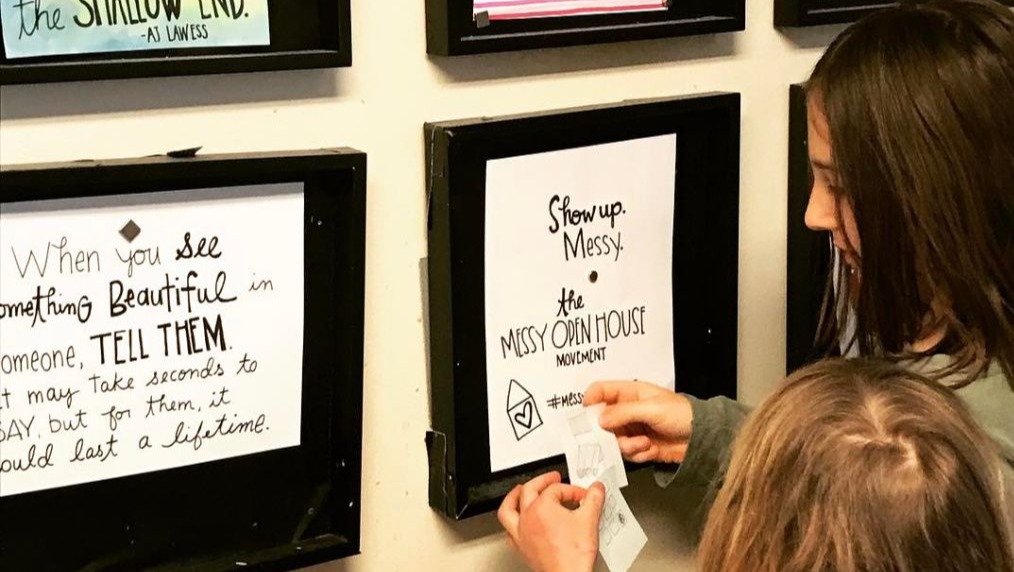 the SHALLOW END.
-AJ LAWESS
When you see
omething Beautiful in
omeone, TELL THEM.
t may take seconds to
SAY, but for them, it
ould last a lifetime.
Show up.
Messy.
the
MESSY OPEN HOUSE
MOVEMENT
#mess